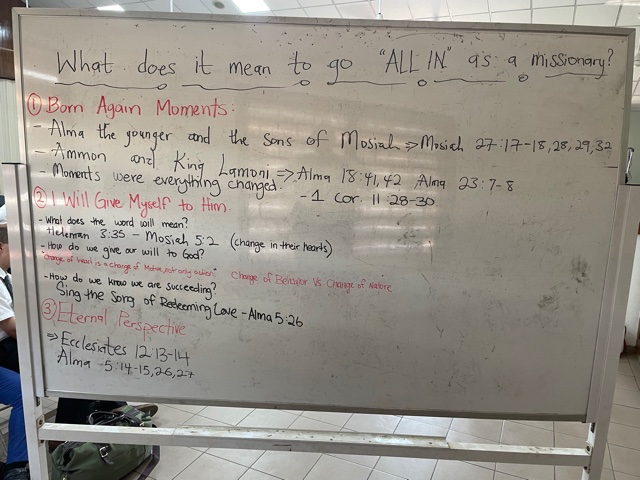 What does it mean to go "ALL IN" as a missionary?
① Born Again Moments:
- Alma the younger and the sons of Mosiah ⇒ Mosiah 27:17-18,28,29,32
- Ammon and King Lamoni ⇒ Alma 18:41,42 Alma 23:7-8
- Moments were everything changed. - 1 Cor. 11:28-30
② I Will Give Myself to Him.
- What does the word will mean?
Helaman 3:35 - Mosiah 5:2 (change in their hearts)
- How do we give our will to God?
Change of heart is a change of Motive, not only action. Change of Behavior Vs Change of Nature
- How do we know we are succeeding?
Sing the Song of Redeeming Love - Alma 5:26
③ Eternal Perspective
⇒ Ecclesiates 12:13-14
Alma 5:14-15,26,27